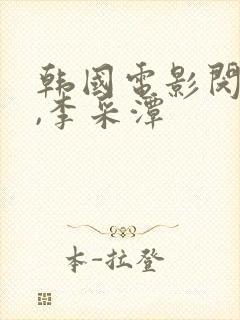 韩國電影閔
,李采潭
本-拉登